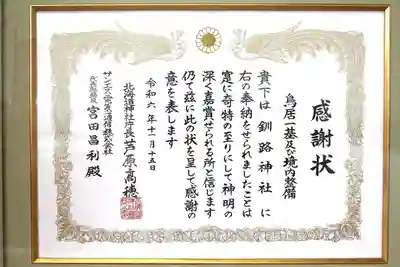 感謝状
鳥居一基及び境内整備
貴下は釧路神社に
右の奉納をせられましたことは
寔に奇特の至りにして神明の
深く嘉賞せられる所と信じます
仍て茲に此の状を呈して感謝の
意を表します
令和六年十一月十五日
北海道神社庁長 芦原高穂
サンエス電気通信株式会社
代表取締役 宮田昌利殿